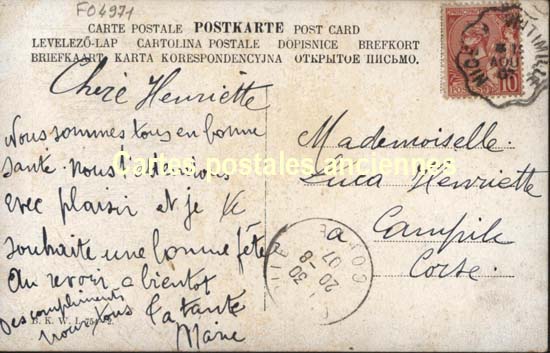 F04971
CARTE POSTALE POSTKARTE POST CARD
LEVELEZŐ-LAP CARTOLINA POSTALE DOPISNICE BREFKORT
BRIEFKAART KARTA KORESPONDENCYJNA ОТКРЫТОЕ ПИСЬМО.
10
NICE A VINTIMILLE
Chère Henriette
Nous sommes tous en bonne
santé nous
avec plaisir et je te
souhaite une bonne fête
Au revoir a bientot
Des compliments
nous tous
la tante
Marie
B. K. W. I.
Mademoiselle
Luca Henriette
a Campile
Corse.
Cartes postales anciennes
CORSE
30
20-8
07